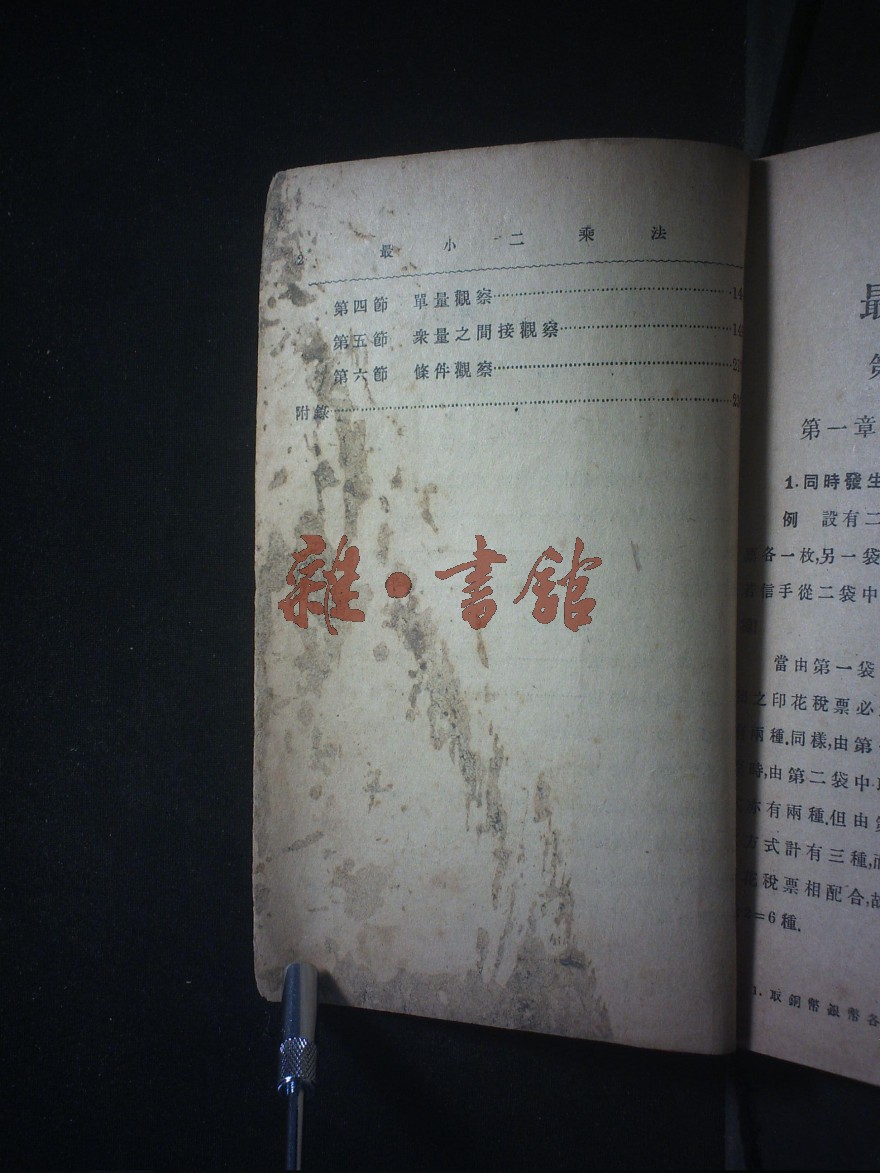 2 最小二乘法
第四節 單量觀察
第五節 衆量之間接觀察
第六節 條件觀察
附錄
雜·書館
最
第
第一章
1.同時發生
例 設有二
各一枚,另一袋
信手從二袋中
當由第一袋
之印花稅票必
兩種.同樣,由第
時,由第二袋中
亦有兩種.但由
方式計有三種,
稅票相配合,故
=6種.
1. 取銅幣銀幣各